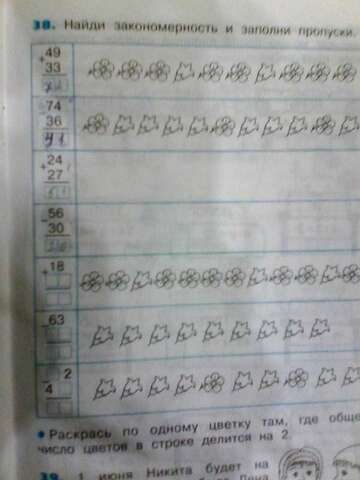 38. Найди закономерность и заполни пропуски.
+ 49
33
- 74
36
+ 24
27
- 56
30
+ 18
- 63
2
4
• Раскрась по одному цветку там, где обще
число цветов в строке делится на 2.
39. 1 июня Никита будет на